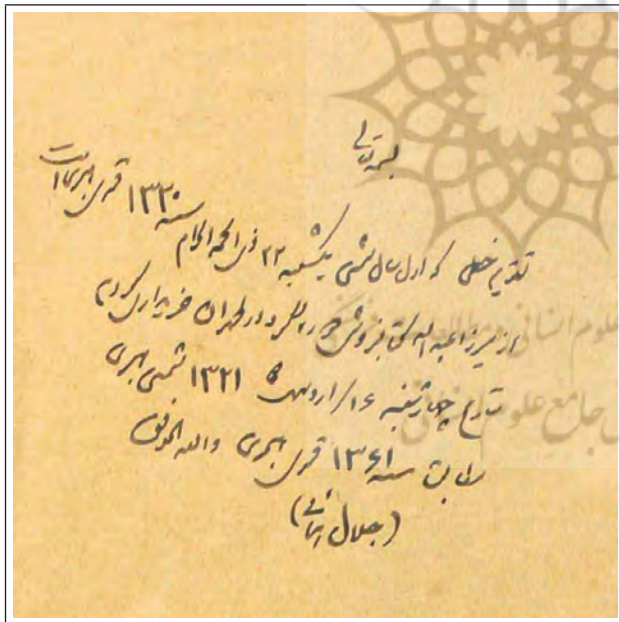 بسمه تعالی
تقویم خطی که اول سال شمسی یکشنبه ۲۲ ذی الحجة الحرام سنه ۱۳۳۰ قمری هجری است
از میرزا عبدالله کتابفروش دوره گرد در طهران خریداری کردم
بتاریخ چهارشنبه ۱۶/ اردیبهشت ۱۳۲۱ شمسی هجری
مطابق سنه ۱۳۶۱ قمری هجری والله الموفق
(جلال همائی)
علوم انسانی و مطالعات
جامع علوم انسانی